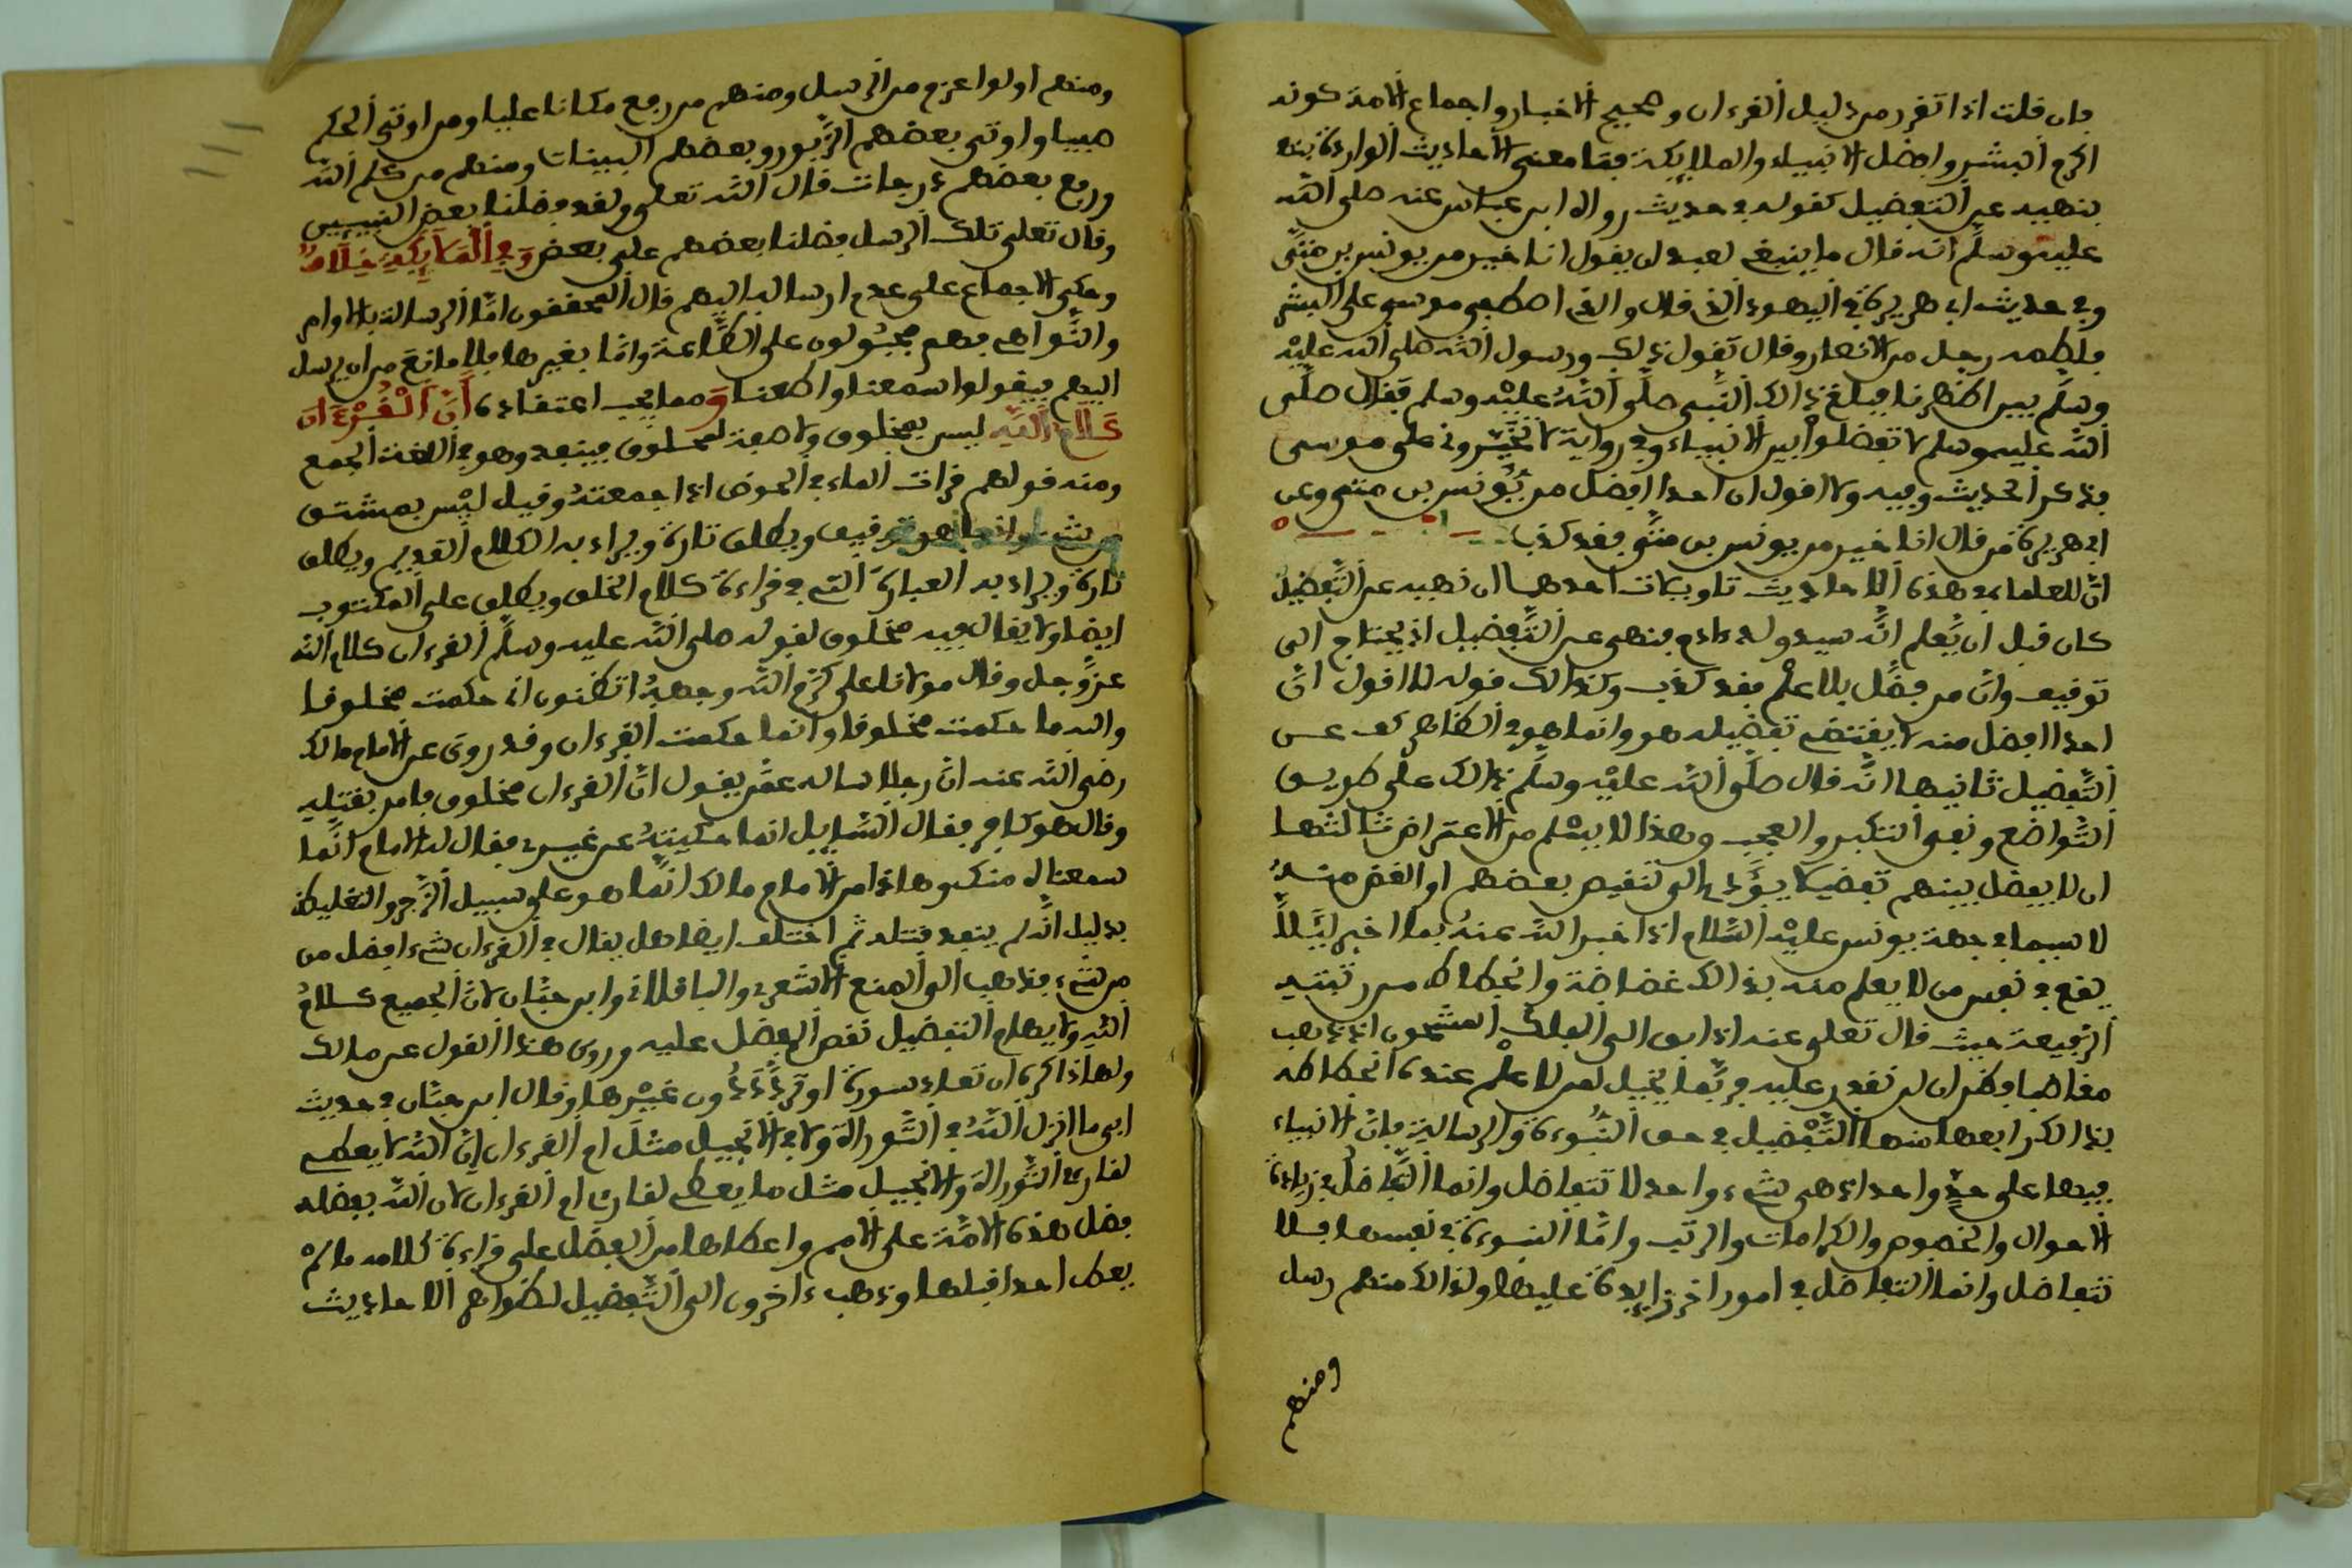 فان قلت اذا تقرر من دليل القرءان وصحيح الاخبار واجماع الامة كونه
اكرم البشر وافضل الانبياء والملايكة فما معنى الاحاديث الواردة
بنهيه عن التفضيل كقوله في حديث رواه ابن عباس عنه صلى الله
عليه وسلم انه قال ما ينبغي لعبد ان يقول انا خير من يونس بن متى
وفي حديث ابي هريرة في اليهودي الذي قال والذي اصطفى موسى على البشر
فلطمه رجل من الانصار وقال تقول ذلك ورسول الله صلى الله عليه
وسلم بين اظهرنا فبلغ ذالك النبي صلى الله عليه وسلم فقال صلى
الله عليه وسلم لا تفضلوا بين الانبياء وفي رواية لا تخيروني على موسى
فذكر الحديث وفيه ولا اقول ان احدا افضل من يونس بن متى وعن
ابي هريرة من قال انا خير من يونس بن متى فقد كذب
ان للعلماء في هذه الاحاديث تاويلات احدها ان نهيه عن التفضيل
كان قبل ان يعلم انه سيد ولد ءادم فنهى عن التفضيل اذ يحتاج الى
توقيف وان من فضل بلا علم فقد كذب وكذالك قوله لا اقول ان
احدا افضل منه لا يقتضي تفضيله هو وانما هو في الظاهر كف عن
التفضيل ثانيها انه قال صلى الله عليه وسلم ذالك على طريق
التواضع ونفي التكبر والعجب وهذا لا يسلم من الاعتراض ثالثها
ان لا يفضل بينهم تفضيلا يؤدي الى تنقيص بعضهم او الغض منه
لا سيما في جهة يونس عليه السلام اذ اخبر الله عنه بما اخبر ليلا
يقع في نفس من لا يعلم منه بذالك غضاضة وانحطاط من رتبته
الرفيعة حيث قال تعلى عنه اذ ابق الى الفلك المشحون اذ ذهب
مغاضبا فظن ان لن نقدر عليه فربما يخيل لمن لا علم عنده انحطاطه
بذالك رابعها منها التفضيل في حق النبوءة والرسالة فان الانبياء
فيها على حد واحد اذ هي شيء واحد لا تتفاضل وانما التفاضل في زيادة
الاحوال والخصوص والكرامات والرتب واما النبوءة في نفسها فلا
تتفاضل وانما التفاضل في امور اخر زايدة عليها ولذالك منهم رسل
ومنهم
ومنهم اولوا عزم من الرسل ومنهم من رفع مكانا عليا ومن اوتي الحكم
صبيا واوتي بعضهم الزبور وبعضهم البينات ومنهم من كلم الله
ورفع بعضهم درجات قال الله تعلى ولقد فضلنا بعض النبيين
وقال تعلى تلك الرسل فضلنا بعضهم على بعض وفي الملايكة خلاف
وحكي الاجماع على عدم ارساله اليهم قال المحققون اما الرسالة بالاوامر
والنواهي فهم مجبولون على الطاعة واما بغيرها فلا مانع من ان يرسل
اليهم ليقولوا سمعنا واطعنا ومما يجب اعتقاده ان القرءان
كلام الله ليس بمخلوق ولا صفة لمخلوق فينفد وهو في اللغة الجمع
ومنه قولهم قرات الماء في الحوض اذا جمعته وقيل ليس بمشتق
من شيء وانما هو توقيف ويطلق تارة ويراد به الكلام القديم ويطلق
تارة ويراد به العبارة التي في قراءة كلام الخلق ويطلق على المكتوب
ايضا ولا يقال فيه مخلوق لقوله صلى الله عليه وسلم القرءان كلام الله
عز وجل وقال مولانا علي كرم الله وجهه اتظنون اني حكمت مخلوقا
والله ما حكمت مخلوقا وانما حكمت القرءان وقد روي عن الامام مالك
رضي الله عنه ان رجلا ساله عمن يقول ان القرءان مخلوق فامر بقتله
وقال هو كافر فقال السايل انما حكيته عن غيري فقال له الامام انما
سمعناه منك وهاذا من الامام مالك انما هو على سبيل الزجر والتغليظ
بدليل انه لم ينفذ قتله ثم اختلف ايضا هل يقال في القرءان شيء افضل من
من شيء فذهب الى المنع الاشعري والباقلاني وابن حبان لان الجميع كلام
الله ولا يهام التفضيل نقص المفضل عليه وروي هذا القول عن مالك
ولهاذا كره ان تعاد سورة او تردد دون غيرها وقال ابن حبان في حديث
ابي ما انزل الله في التوراة ولا في الانجيل مثل ام القرءان ان الله لا يعطي
لقارئ التوراة والانجيل مثل ما يعطي لقارئ ام القرءان لان الله بفضله
فضل هذه الامة على الامم واعطاها من الفضل على قراءة كلامه ما لم
يعط احدا قبلها وذهب ءاخرون الى التفضيل لظواهر الاحاديث